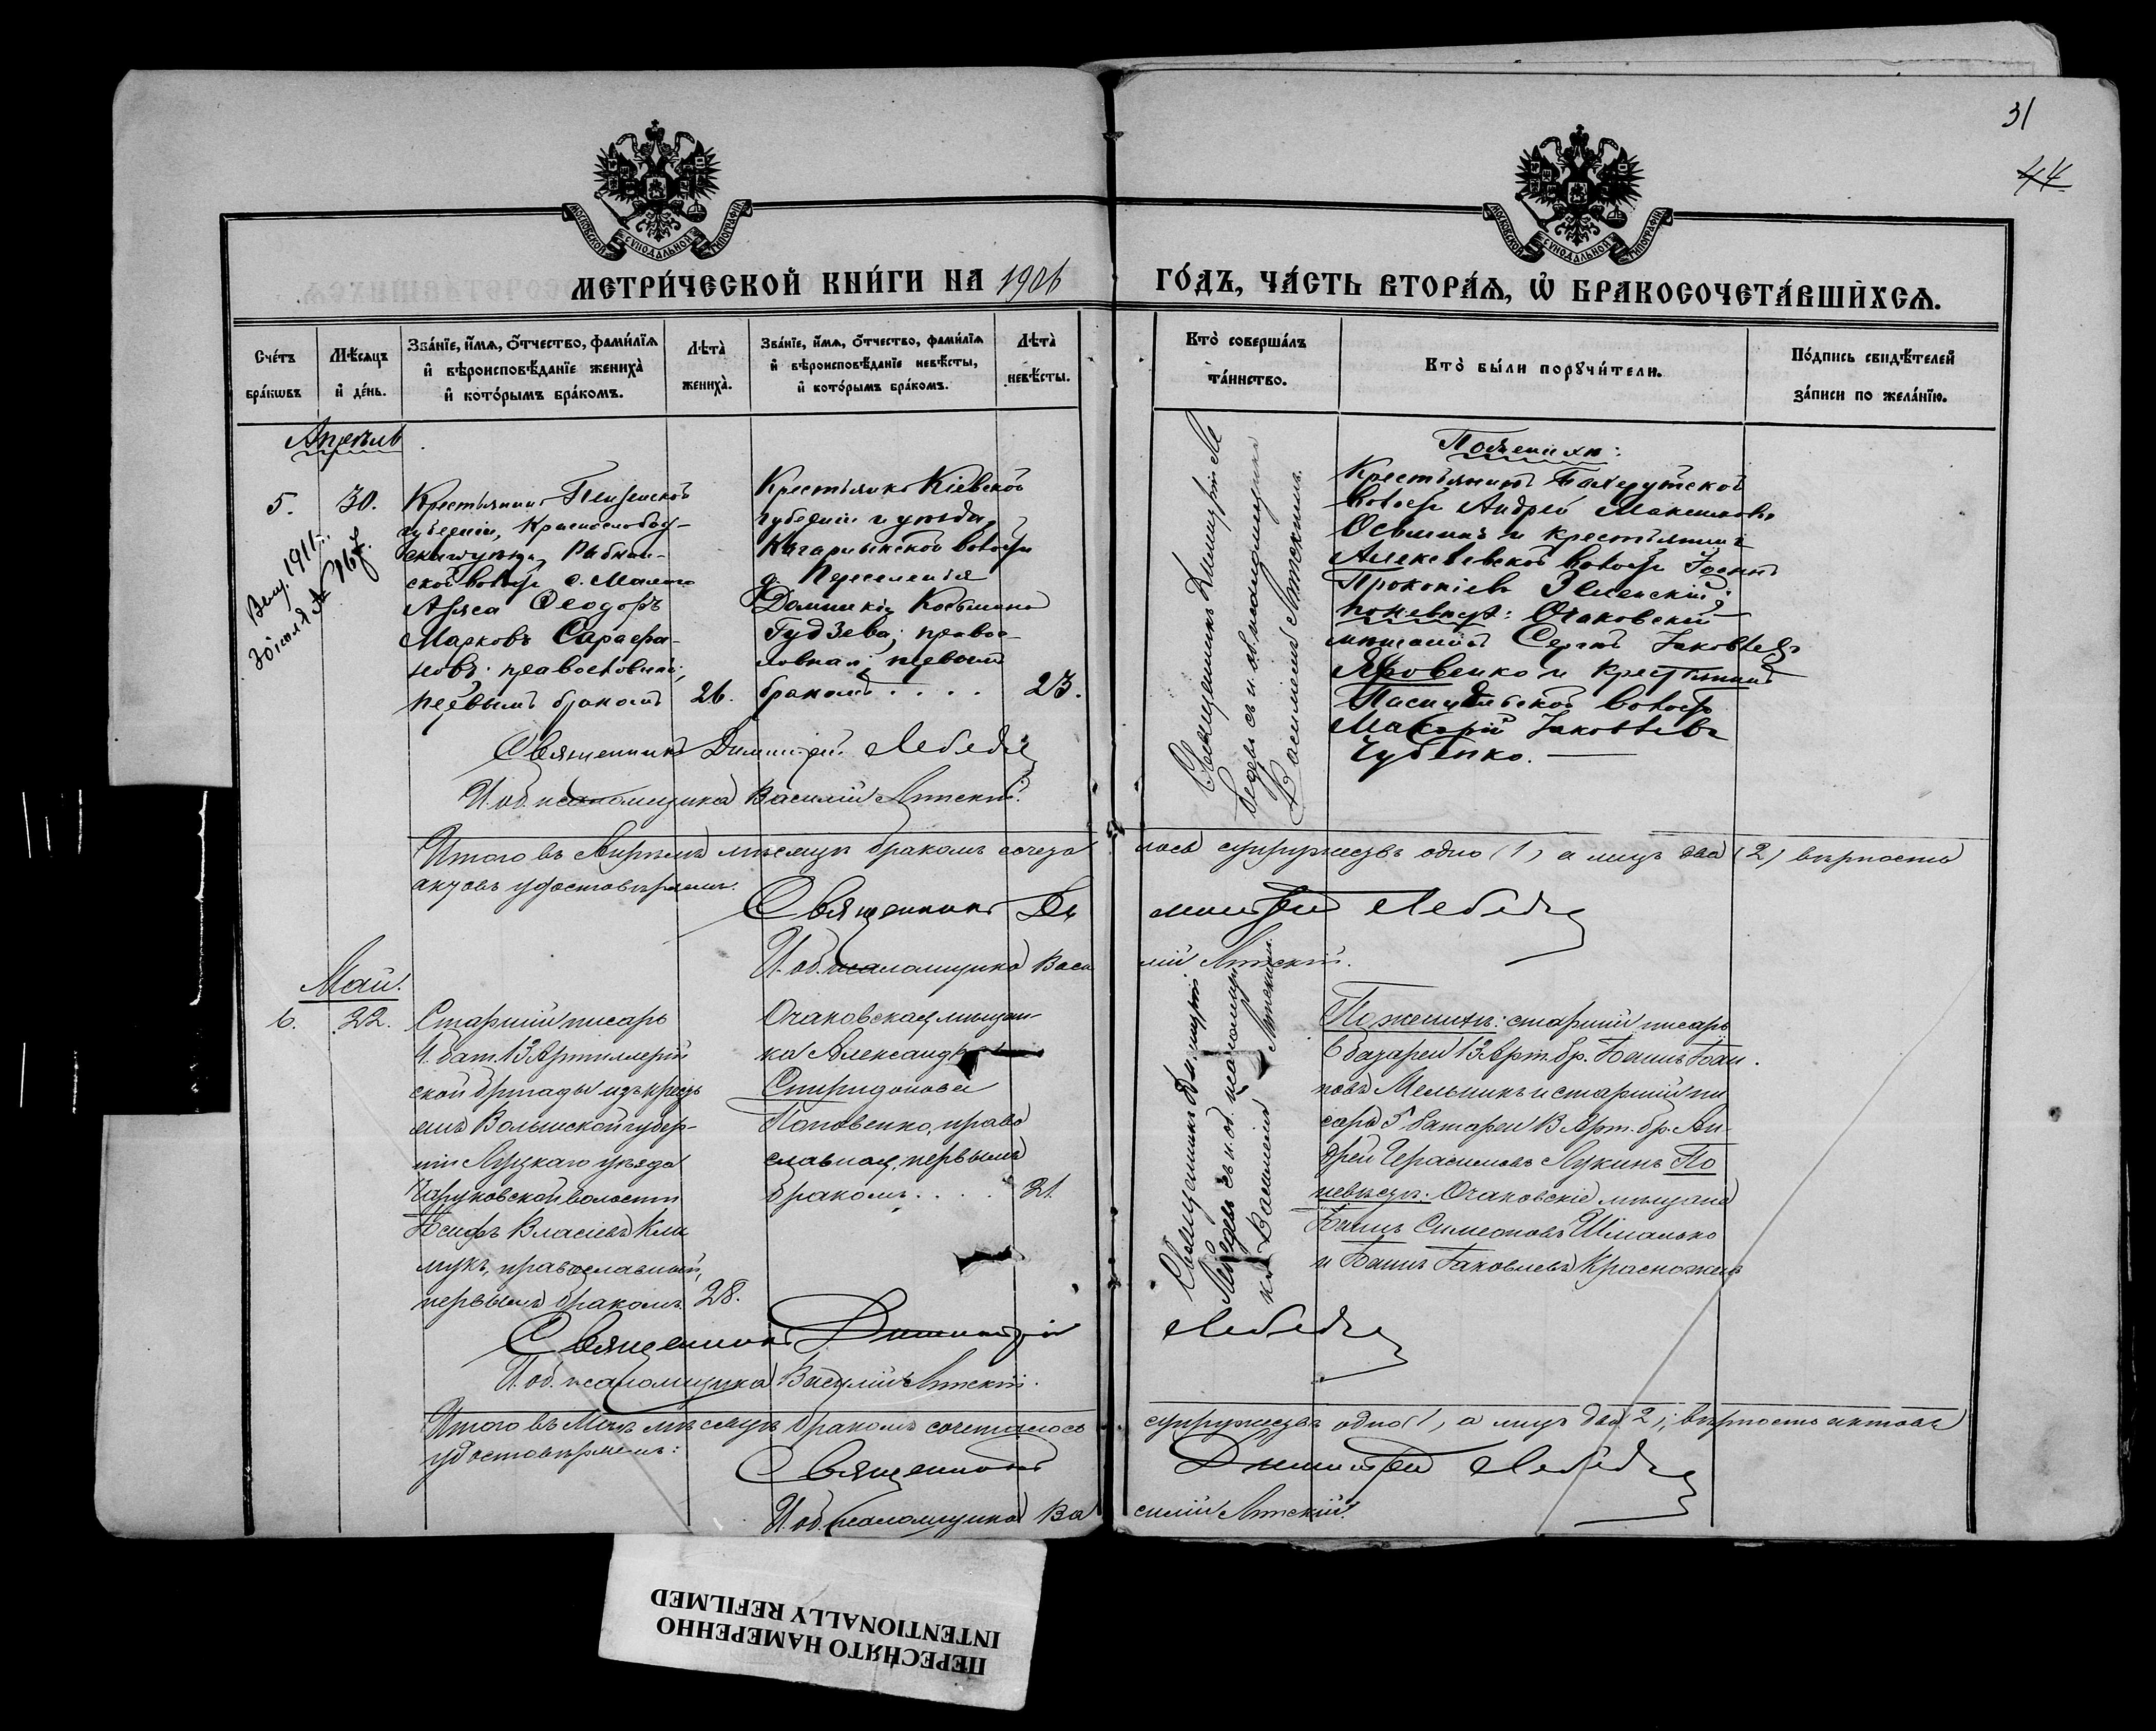 31
44
МОСКОВСКОЙ СѴНОДАЛЬНОЙ ТИПОГРАФІИ
МОСКОВСКОЙ СѴНОДАЛЬНОЙ ТИПОГРАФІИ
МЕТРИ́ЧЕСКОЙ КНИ́ГИ НА 1906 ГО́ДЪ, ЧА́СТЬ ВТОРА́Ѧ, Ѡ҆ БРАКОСОЧЕТА́ВШИХСѦ.
Сче́тъ
бра́кѡвъ
Мѣ́сѧцъ
и҆ де́нь.
Зва́нїе, и҆́мѧ, ѻ҆́тчество, фами́лїѧ
и҆ вѣроисповѣ́данїе жениха̀
и҆ кото́рымъ бра́комъ.
Лѣта̀
жениха̀.
Зва́нїе, и҆́мѧ, ѻ҆́тчество, фами́лїѧ
и҆ вѣроисповѣ́данїе невѣ́сты,
и҆ кото́рымъ бра́комъ.
Лѣта̀
невѣ́сты.
Кто̀ соверша́лъ
та́инство.
Кто̀ бы́ли порꙋчи́тели.
По́дпись свидѣ́телей
за́писи по жела́нїю.
Апрѣль
5.
30.
Крестьянинъ Пензенской
губерніи, Краснослобод-
скаго уѣзда, Рыбкин-
ской волости с. Малаго
Азяса Ѳеодоръ
Марковъ Сарафа-
новъ православный;
первымъ бракомъ
26.
Крестьянка Кіевской
губерніи и уѣзда,
Кагарлыкской волости
д. Переселенія
Домникія Косьмина
Гудзева; правос-
лавная, первымъ
бракомъ . . . .
23.
Священникъ Димитрій Ле
бедевъ съ и. об. псаломщика
Василіемъ Лятскимъ.
По женихѣ:
Крестьянинъ
волости Андрей Максимовъ
Осьминъ и крестьянинъ
Алексѣевской волости Іосифъ
Прокопіевъ Зеленскій;
по невѣстѣ: Очаковскій
мѣщанинъ Сергѣй Іаковлевъ
Яровенко и крестьянинъ
волости
Іаковлевъ
Чубенко.
Священникъ Димитрій Лебедевъ
И. об. псаломщика Василій Лятскій.
Итого въ Апрѣлѣ мѣсяцѣ бракомъ сочета
лось супружествъ одно (1) а лицъ два (2) вѣрность
актовъ удостовѣряемъ.
Священникъ Ди
митрій Лебедевъ
И. об. псаломщика Васи
лій Лятскій.
Май.
6.
22.
Старшій писарь
4 бат. 13 Артиллерій
ской бригады изъ кресть
янъ Волынской губер-
ніи Луцкаго уѣзда
Чаруковской волости
Іосифъ Власіевъ Кли
мукъ, православный,
первымъ бракомъ.
28.
Очаковская мѣщан
ка Александра
Спиридонова
Поповенко, право
славная, первымъ
бракомъ. . . .
21.
Священникъ Димитрій
Лебедевъ съ и. об. псаломщи
ка Василіемъ Лятскимъ.
По женихѣ: старшій писарь
6 батареи 13 Арт. бр. Іоаннъ Іоан
новъ Мельникъ и старшій пи
сарь 5 батареи 13 Арт. бр. Ан-
дрей Герасимовъ Лукинъ По
невѣстѣ: Очаковскіе мѣщане
Іоаннъ Симеоновъ Шмалько
и Іоаннъ Іаковлевъ Красножонъ
Священникъ Димитрій
Лебедевъ
И. об. псаломщика Василій Лятскій.
Итого въ Маѣ мѣсяцѣ бракомъ сочеталось
супружествъ одно (1), а лицъ два (2), вѣрность актовъ
удостовѣряемъ:
Священникъ
Димитрій Лебедевъ
И. об. псаломщика Ва
силій Лятскій.
ПЕРЕСНЯТО НАМЕРЕННО
INTENTIONALLY REFILMED